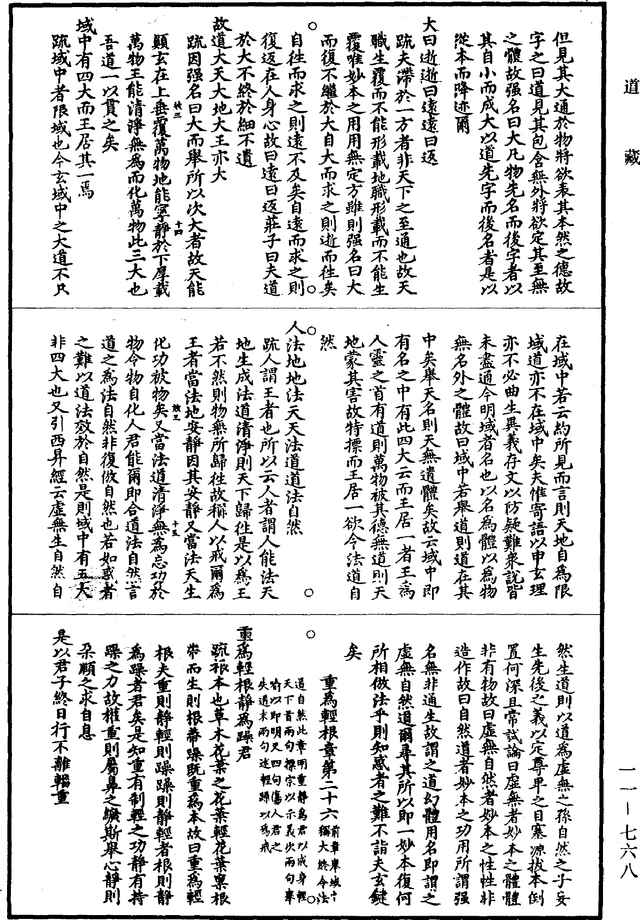 道藏
一一—七六八
但見其大通於物將欲表其本然之德故
字之曰道見其包含無外將欲定其至無
之體故强名曰大凡物先名而後字者以
其自小而成大以道先字而後名者是以
從本而降迹爾
大曰逝逝曰遠遠曰返
疏夫滯於一方者非天下之至通也故天
職生覆而不能形載地職形載而不能生
覆唯妙本之用用無定方雖則强名曰大
而復不繼於大自大而求之則逝而往矣
自往而求之則遠不及矣自遠而求之則
復返在人身心故曰遠曰返莊子曰夫道
於大不終於細不遺
故道大天大地大王亦大
疏因强名曰大而舉所以次大者故天能
顛玄在上垂覆萬物地能寧靜於下厚載
萬物王能清淨無為而化萬物此三大也
吾道一以貫之矣
域中有四大而王居其一焉
疏域中者限域也今玄域中之大道不只
在域中若云約所見而言則天地自為限
域道亦不在域中矣夫惟寄語以申玄理
亦不必曲生異義存文以防疑難衆說皆
未盡通今明域者名也以名為體以為物
無名外之體故曰域中若舉道則道在其
中矣舉天名則天無遺體矣故云域中即
有名之中有此四大云而王居一者王為
人靈之首有道則萬物被其德無道則天
地蒙其害故特標而王居一欲令法道自
然
人法地地法天天法道道法自然
疏人謂王者也所以云人者謂人能法天
地生成法道清淨則天下歸往是以為王
若不然則物無所歸往故稱人以戒爾為
王者當法地安靜因其安靜又當法天生
化功被物矣又當法道清淨無為忘功於
物令物自化人君能爾即合道法自然言
道之為法自然非復倣自然也若如惑者
之難以道法效於自然是則域中有五大
非四大也又引西昇經云虛無生自然自
然生道則以道為虛無之孫自然之子妄
生先後之義以定尊卑之目塞源拔本倒
置何深且常試論曰虛無者妙本之體體
非有物故曰虛無自然者妙本之性性非
造作故曰自然道者妙本之功用所謂强
名無非通生故謂之道幻體用名即謂之
虛無自然道爾尋其所以即一妙本復何
所相倣法乎則知惑者之難不詣夫玄鍵
矣
重為輕根章第二十六
前章舉域中
獨大終令法
道自然此章明重靜為君以戒身輕
天下首兩句標宗以示義次兩句舉
喻以即明又四句傷人君之
失道末兩句述輕躁以為戒
重為輕根靜為躁君
疏根本也草木花葉之花葉輕花葉稟根
蔕而生則根蔕躁既重為本故曰重為輕
根夫重則靜輕則躁躁則靜輕者根則靜
為躁者君矣是知重有制輕之功靜有持
躁之力故權重則屬鼻之纊斯舉心靜則
朵頤之求自息
是以君子終日行不離輜重